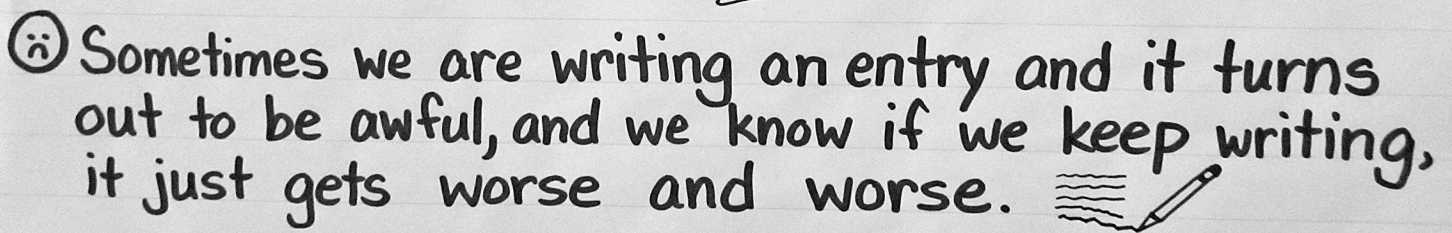 Sometimes we are writing an entry and it turns
out to be awful, and we know if we keep writing,
it just gets worse and worse.